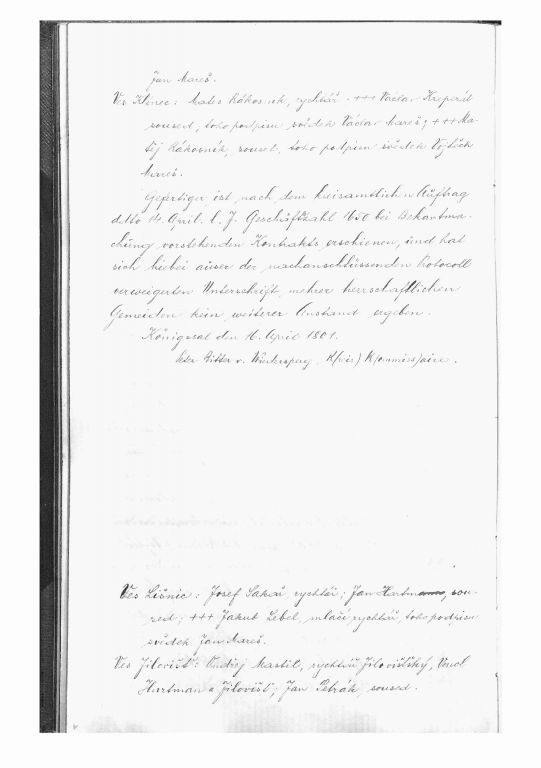 Jan Mareš.
Ves Klinec: Matěs Rákosník, rychtář. +++ Václav Kreperát
soused, toho podpisu svědek Václav Mareš; +++ Ma-
těj Rákosník, soused, toho podpisu svědek Vojtěch
Mareš.
Gefertiger ist nach dem kreisamtlichen Auftrag
detto 14. April l. J. Geschäftzahl 1650 bei Bekantma-
chung vorstehenden Kontrakts erschienen, und hat
sich hiebei auser der, nachanschlüssenden Protocoll
verweigerten Unterschrift, mehrer herrschaftlichen
Gemeiden kein weiterer Anstand ergeben.
Königsaal den 16. April 1801.
Ritter v. Wiedersperg, K(reis) K(ommiss)aire.
Ves Lišnic: Josef Sakař, rychtář; Jan Hartman, sou-
sed; +++ Jakub Lebel, mlačí rychtář, toho podpisu
svědek Jan Mareš.
Ves Jílovišť: Ondřej Mastil, rychtář Jílovišťský, Vencl
Hartman z Jílovišť; Jan Petrák, soused.